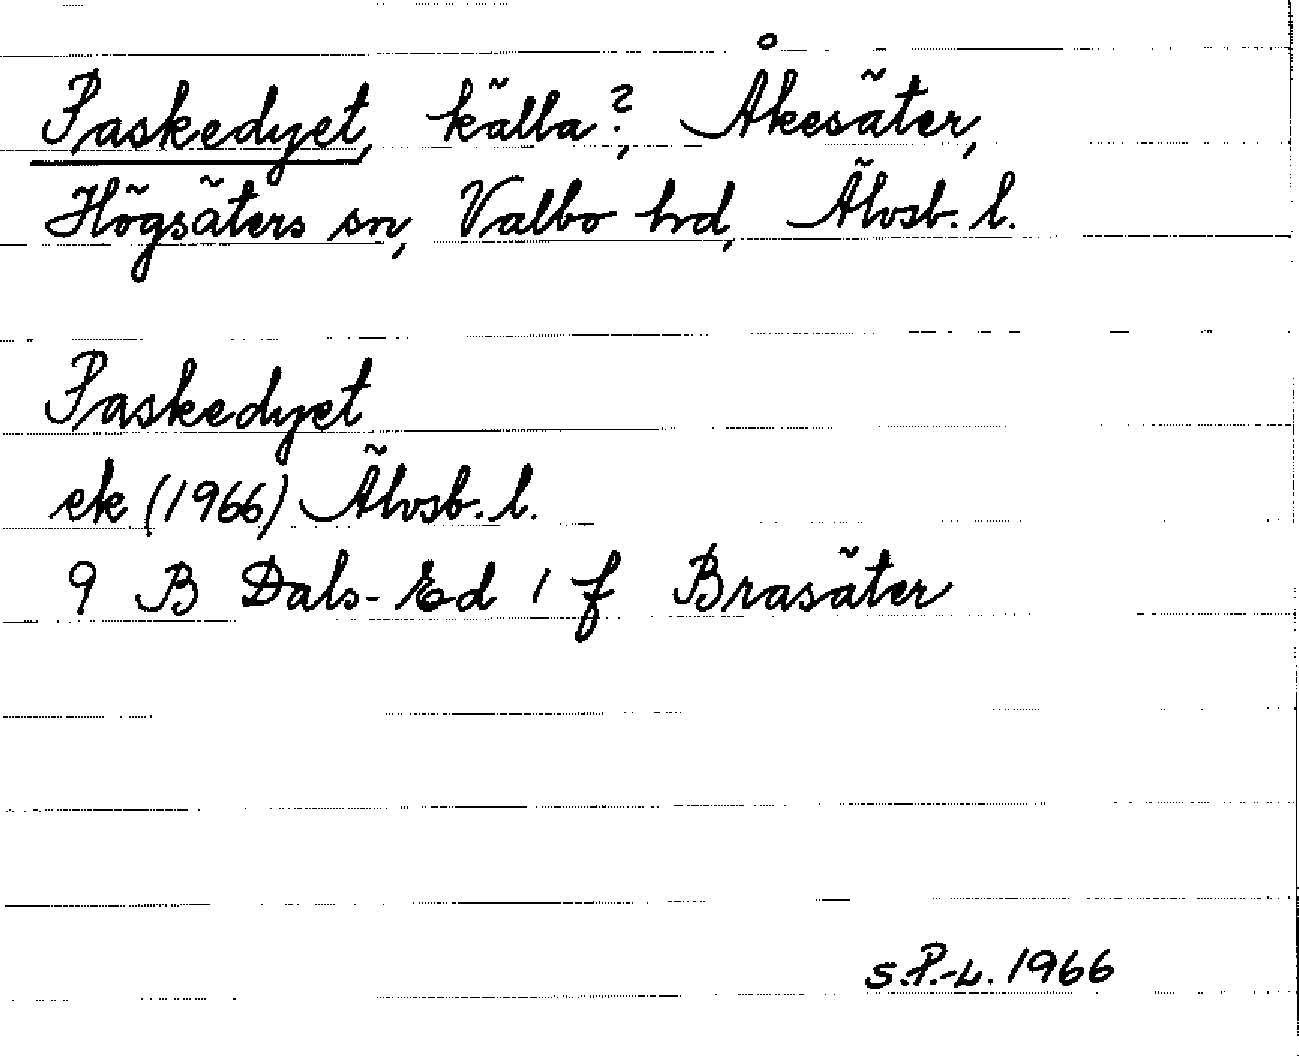 Paskedyet, källa?, Åkesäter,
Högsäters sn, Valbo hd, Älvsb. l.
Paskedyet
ek (1966) Älvsb. l.
9 B Dals-Ed 1 f Brasäter
S.P.-L. 1966